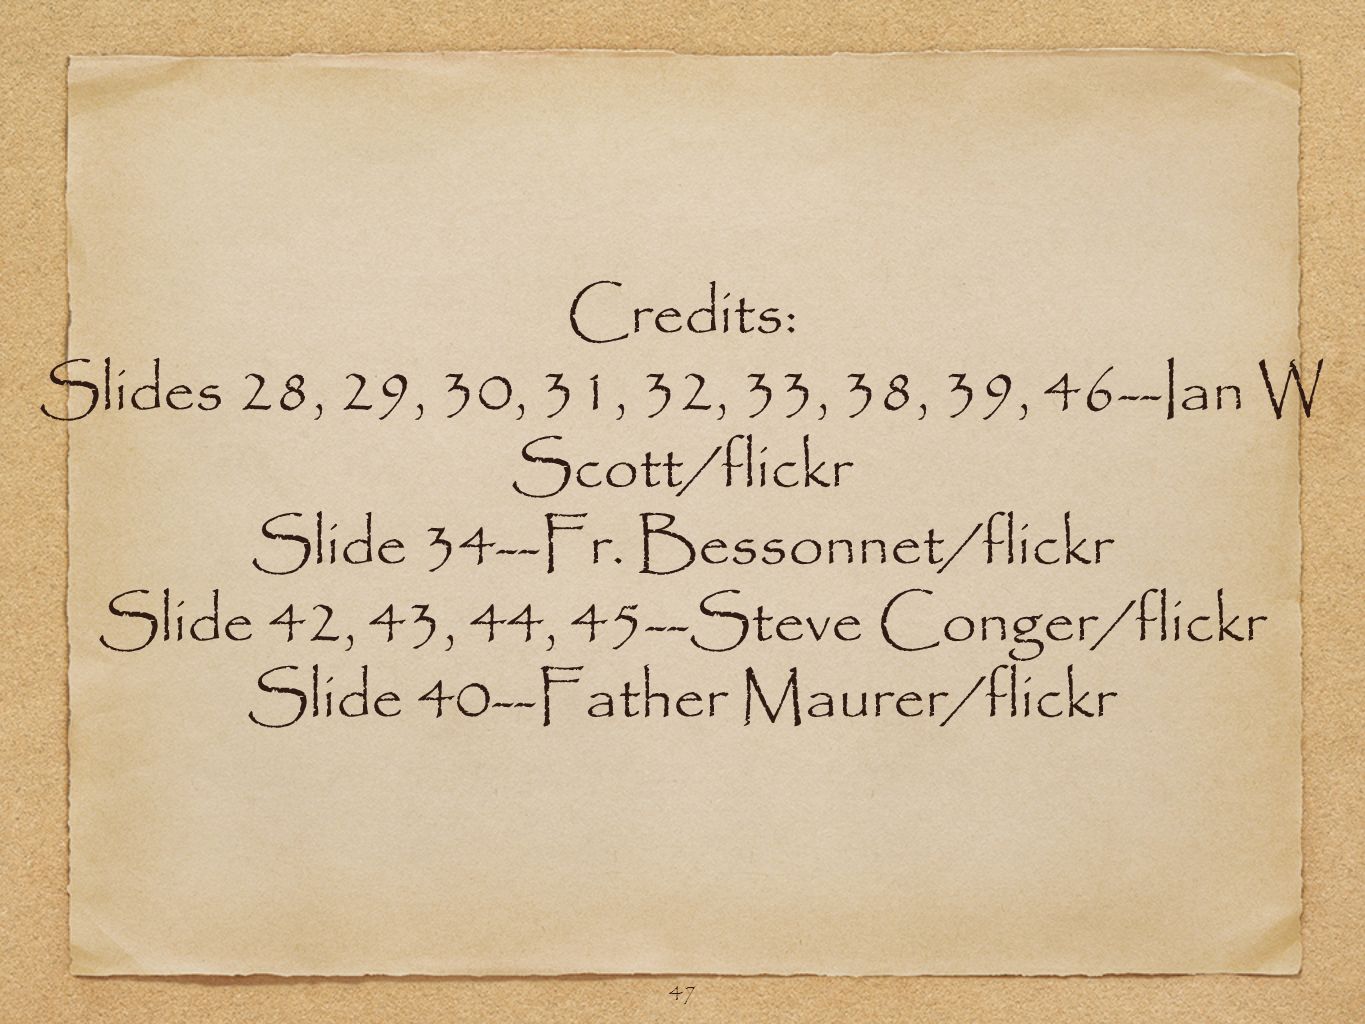 Credits:
Slides 28, 29, 30, 31, 32, 33, 38, 39, 46--Ian W
Scott/flickr
Slide 34--Fr. Bessonnet/flickr
Slide 42, 43, 44, 45--Steve Conger/flickr
Slide 40--Father Maurer/flickr
47